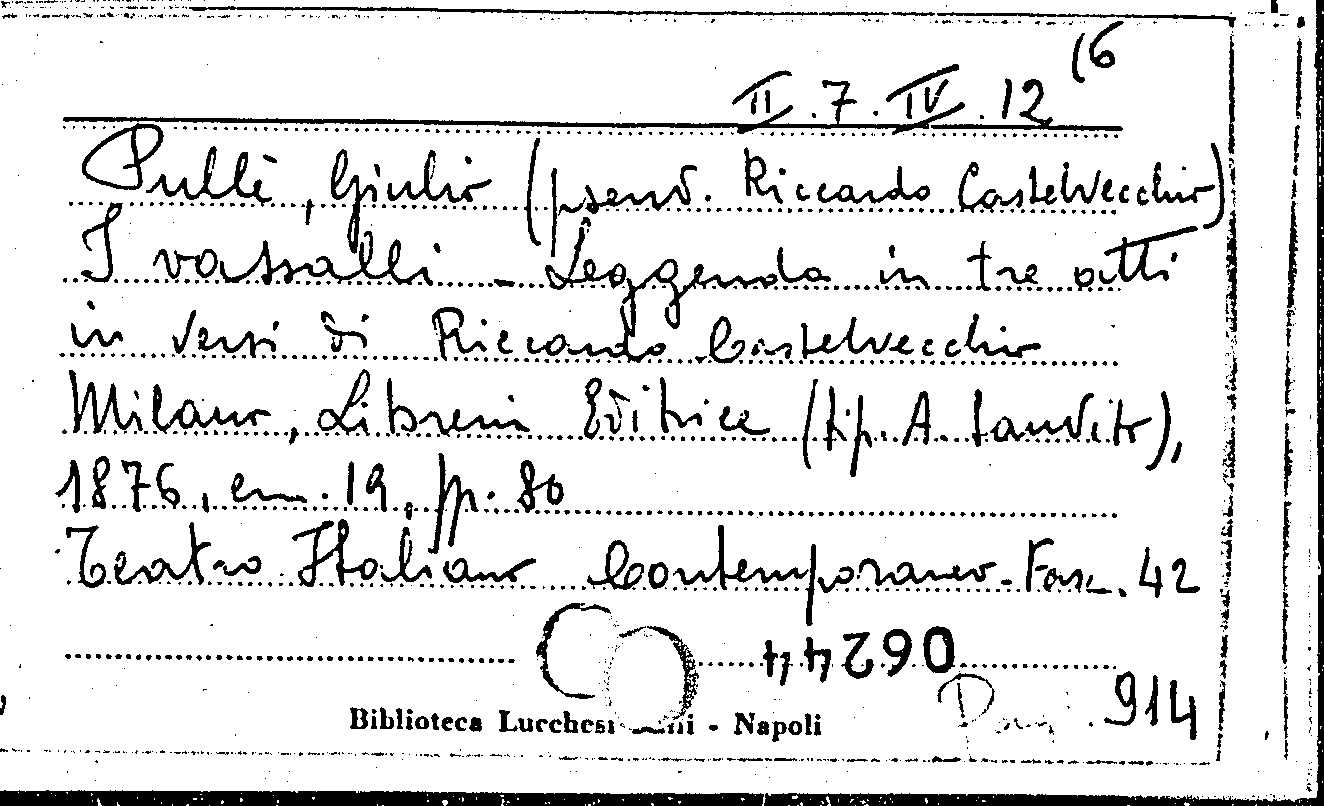 II.7.IV.12 (6
Pullè, Giulio (pseud. Riccardo Castelvecchio)
I vassalli - Leggenda in tre atti
in versi di Riccardo Castelvecchio
Milano, Libreria Editrice (tip. A. Lanvito),
1876, cm. 19, pp. 80
Teatro Italiano Contemporaneo - Fasc. 42
06244
914
Biblioteca Lucchesi - Napoli